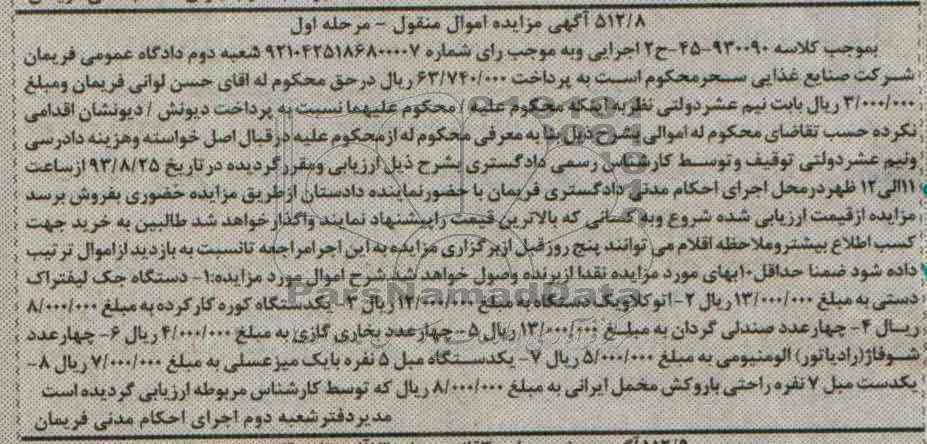 ۵۱۲/۸ آگهی مزایده اموال منقول - مرحله اول
بموجب کلاسه ۹۳۰۰۹۰-۴۵-ح۲ اجرایی وبه موجب رای شماره ۹۲۱۰۴۲۵۱۸۶۸۰۰۰۰۷ شعبه دوم دادگاه عمومی فریمان
شرکت صنایع غذایی سحرمحکوم است به پرداخت ۶۳/۷۴۰/۰۰۰ ریال درحق محکوم له اقای حسن لوانی فریمان ومبلغ
۳/۰۰۰/۰۰۰ ریال بابت نیم عشردولتی نظربه اینکه محکوم علیه / محکوم علیهما نسبت به پرداخت دیونش / دیونشان اقدامی
نکرده حسب تقاضای محکوم له اموالی بشرح ذیل بنا به معرفی محکوم له ازمحکوم علیه درقبال اصل خواسته وهزینه دادرسی
ونیم عشردولتی توقیف وتوسط کارشناس رسمی دادگستری بشرح ذیل ارزیابی ومقررگردیده درتاریخ ۹۳/۸/۲۵ ازساعت
۱۱الی۱۲ ظهردرمحل اجرای احکام مدنی دادگستری فریمان با حضورنماینده دادستان ازطریق مزایده حضوری بفروش برسد
مزایده ازقیمت ارزیابی شده شروع وبه کسانی که بالاترین قیمت راپیشنهاد نمایند واگذارخواهد شد طالبین به خرید جهت
کسب اطلاع بیشتروملاحظه اقلام می توانند پنج روزقبل ازبرگزاری مزایده به این اجرامراجعه تانسبت به بازدید ازاموال ترتیب
داده شود ضمنا حداقل ۱۰بهای مورد مزایده نقدا ازبرنده وصول خواهد شد شرح اموال مورد مزایده:۱- دستگاه جک لیفتراک
دستی به مبلغ ۱۳/۰۰۰/۰۰۰ ریال ۲- اتوکلاویک دستگاه به مبلغ ۱۲/۰۰۰/۰۰۰ ریال ۳- یکدستگاه کوره کارکرده به مبلغ ۸/۰۰۰/۰۰۰
ریال ۴- چهارعدد صندلی گردان به مبلغ ۱۳/۰۰۰/۰۰۰ ریال ۵- چهارعدد بخاری گازی به مبلغ ۴/۰۰۰/۰۰۰ ریال ۶- چهارعدد
شوفاژ(رادیاتور) الومنیومی به مبلغ ۵/۰۰۰/۰۰۰ ریال ۷- یکدستگاه مبل ۵ نفره بایک میزعسلی به مبلغ ۷/۰۰۰/۰۰۰ ریال ۸-
یکدست مبل ۷ نفره راحتی باروکش مخمل ایرانی به مبلغ ۸/۰۰۰/۰۰۰ ریال که توسط کارشناس مربوطه ارزیابی گردیده است
مدیردفترشعبه دوم اجرای احکام مدنی فریمان
ParsNamadData